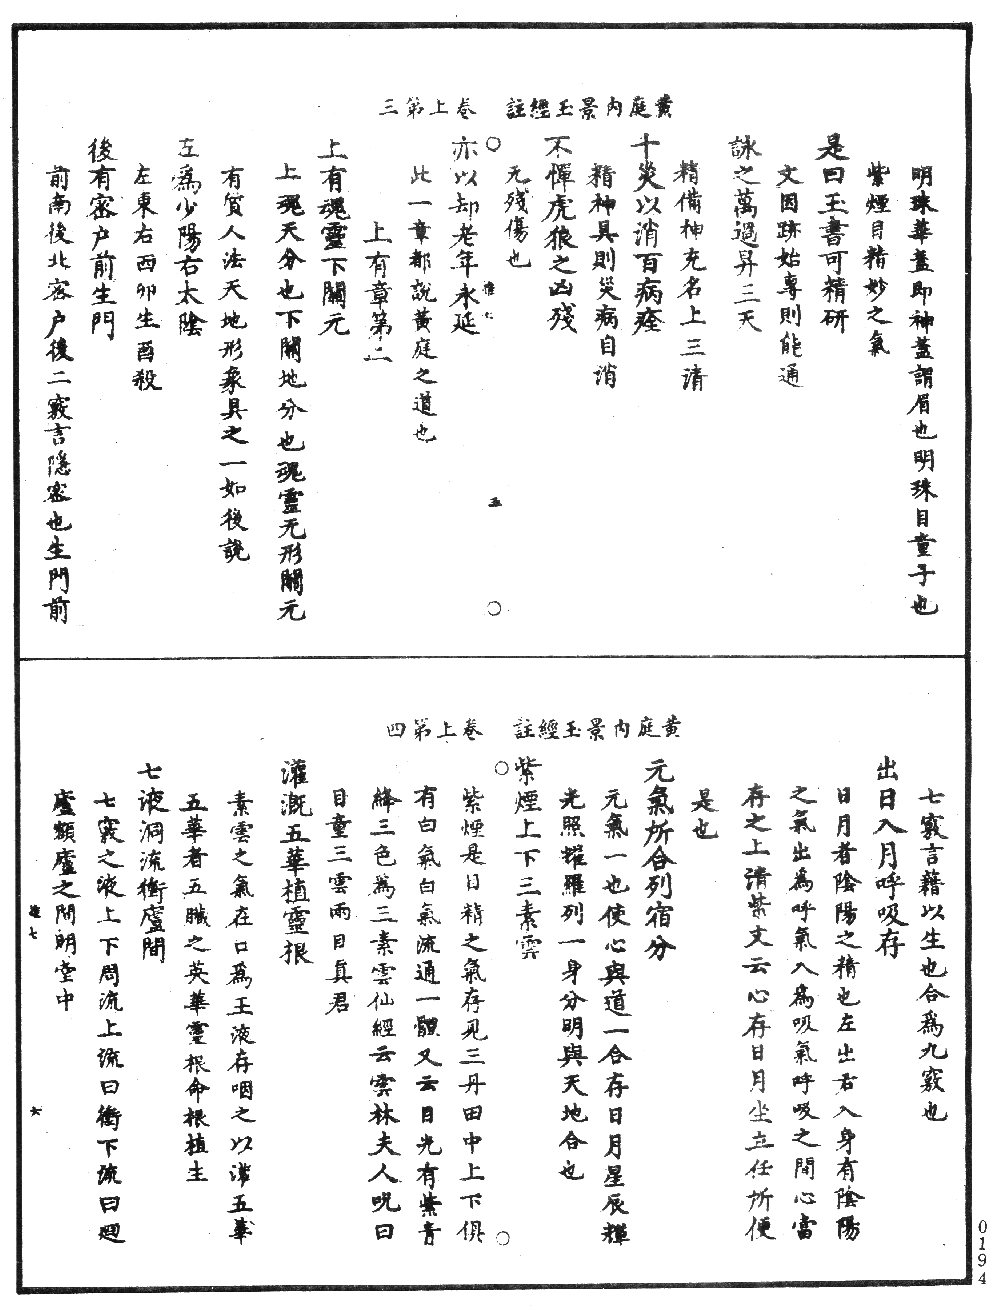 黄庭内景玉經註　卷上第三
明珠華蓋即神蓋謂眉也明珠目童子也
紫煙目精妙之氣
是曰玉書可精研
文因跡始專則能通
詠之萬過昇三天
精備神充名上三清
十災以消百病痊
精神具則災病自消
不憚虎狼之凶殘
无殘傷也
五
亦以却老年永延
此一章都說黃庭之道也
上有章第二
上有魂靈下關元
上魂天分也下關地分也魂靈无形關元
有質人法天地形象具之一如後說
左爲少陽右太陰
左東右西卯生酉殺
後有密户前生門
前南後北密户後二竅言隱密也生門前
黄庭内景玉經註　卷上第四
七竅言藉以生也合爲九竅也
出日入月呼吸存
日月者陰陽之精也左出右入身有陰陽
之氣出為呼氣入為吸氣呼吸之間心當
存之上清紫文云心存日月坐立任所便
是也
元氣所合列宿分
元氣一也使心與道一合存日月星辰輝
光照耀羅列一身分明與天地合也
紫煙上下三素雲
紫煙是目精之氣存見三丹田中上下俱
有白氣白氣流通一體又云目光有紫青
絳三色爲三素雲仙經云雲林夫人呪曰
目童三雲雨目真君
灌溉五華植靈根
素雲之氣在口爲玉液存咽之以灌五華
五華者五臟之英華靈根命根植生
七液洞流衝廬間
七竅之液上下周流上流曰衝下流曰迴
廬額廬之間明堂中
六
0194